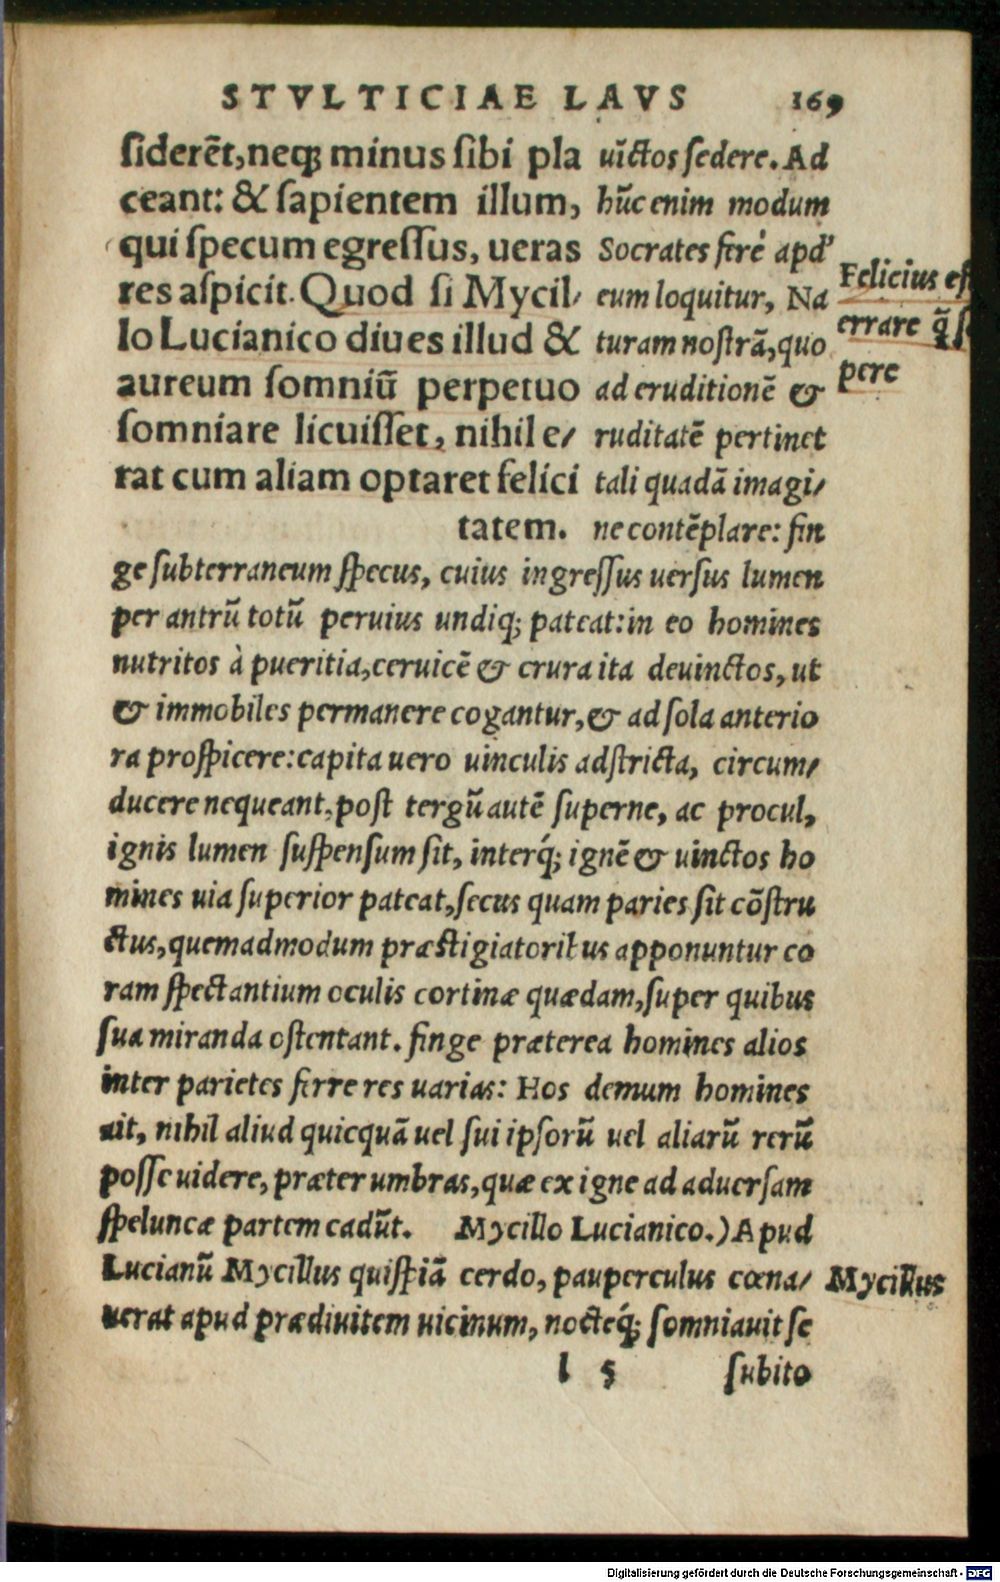 STVLTICIAE LAVS 169
siderēt, neq; minus sibi pla
ceant: & sapientem illum,
qui specum egressus, ueras
res aspicit. Quod si Mycil/
lo Lucianico diues illud &
aureum somniū perpetuo
somniare licuisset, nihil e/
rat cum aliam optaret felici
tatem.
uīctos sedere. Ad
hūc enim modum
Socrates ferè apđ
eum loquitur, Na
turam nostrā, quo
ad eruditionē &
ruditatē pertinet
tali quadā imagi/
ne contēplare: fin
Felicius est
errare q̃ s
pere
ge subterraneum specus, cuius ingressus uersus lumen
per antrū totū peruius undiq; pateat: in eo homines
nutritos à pueritia, ceruicē & crura ita deuinctos, ut
& immobiles permanere cogantur, & ad sola anterio
ra prospicere: capita uero uinculis adstricta, circum/
ducere nequeant, post tergū autē superne, ac procul,
ignis lumen suspensum sit, interq́; ignē & uinctos ho
mines uia superior pateat, secus quam paries sit cōstru
ctus, quemadmodum præstigiatoribus apponuntur co
ram spectantium oculis cortinæ quædam, super quibus
sua miranda ostentant. finge præterea homines alios
inter parietes ferre res uarias: Hos demum homines
ait, nihil aliud quicquā uel sui ipsorū uel aliarū rerū
posse uidere, præter umbras, quæ ex igne ad aduersam
speluncæ partem cadūt. Mycillo Lucianico.) Apud
Lucianū Mycillus quispiā cerdo, pauperculus cœna/
uerat apud prædiuitem uicinum, nocteq́; somniauit se
Mycillus
l 5 subito
Digitalisierung gefördert durch die Deutsche Forschungsgemeinschaft - DFG